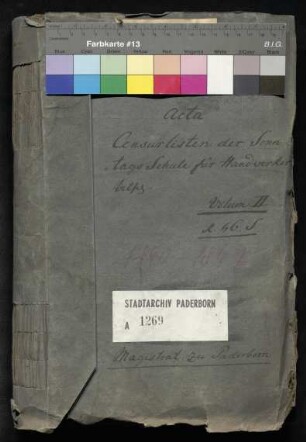 Farbkarte #13
B.I.G.
Blue Cyan Green Yellow Red Magenta White 3/Color Black
Acta
Censurlisten der Sonn
tags Schule für Handwerker
Volum II.
STADTARCHIV PADERBORN
A 1269
Magistrat zu Paderborn